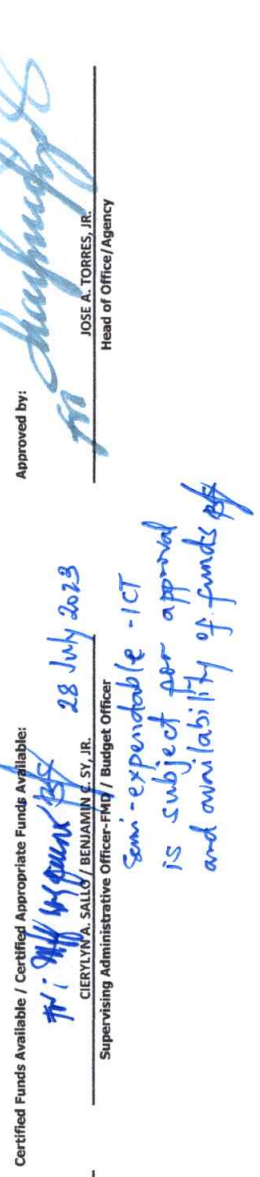 Certified Funds Available / Certified Appropriate Funds Available:
28 July 2023
CIERYLYN A. SALLO / BENJAMIN C. SY, JR.
Supervising Administrative Officer-FMD / Budget Officer
Semi-expendable - ICT
is subject for approval
and availability of funds
Approved by:
For
JOSE A. TORRES, JR.
Head of Office/Agency